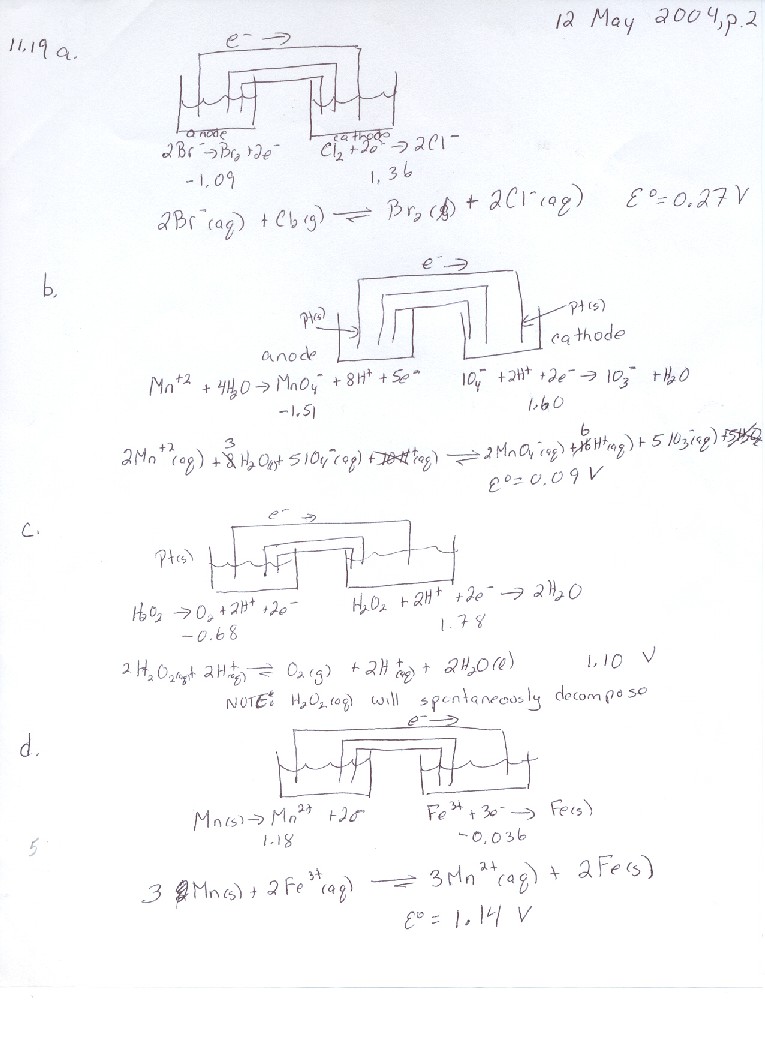 12 May 2004, p.2
11.19 a.
e⁻ →
anode cathode
2Br⁻ → Br₂ + 2e⁻ Cl₂ + 2e⁻ → 2Cl⁻
-1.09 1.36
2Br⁻(aq) + Cl₂(g) ⇌ Br₂(l) + 2Cl⁻(aq) ℰ° = 0.27 V
b.
e⁻ →
Pt(s) Pt(s)
anode cathode
Mn⁺² + 4H₂O → MnO₄⁻ + 8H⁺ + 5e⁻ IO₄⁻ + 2H⁺ + 2e⁻ → IO₃⁻ + H₂O
-1.51 1.60
2Mn⁺²(aq) + 3 H₂O(l) + 5IO₄⁻(aq) ⇌ 2MnO₄⁻(aq) + 6 H⁺(aq) + 5IO₃⁻(aq)
ℰ° = 0.09 V
c.
e⁻ →
Pt(s)
H₂O₂ → O₂ + 2H⁺ + 2e⁻ H₂O₂ + 2H⁺ + 2e⁻ → 2H₂O
-0.68 1.78
2H₂O₂(aq) + 2H⁺(aq) ⇌ O₂(g) + 2H⁺(aq) + 2H₂O(l) 1.10 V
NOTE: H₂O₂(aq) will spontaneously decompose
d.
e⁻ →
Mn(s) → Mn²⁺ + 2e⁻ Fe³⁺ + 3e⁻ → Fe(s)
1.18 -0.036
5
3 Mn(s) + 2Fe³⁺(aq) ⇌ 3Mn²⁺(aq) + 2Fe(s)
ℰ° = 1.14 V